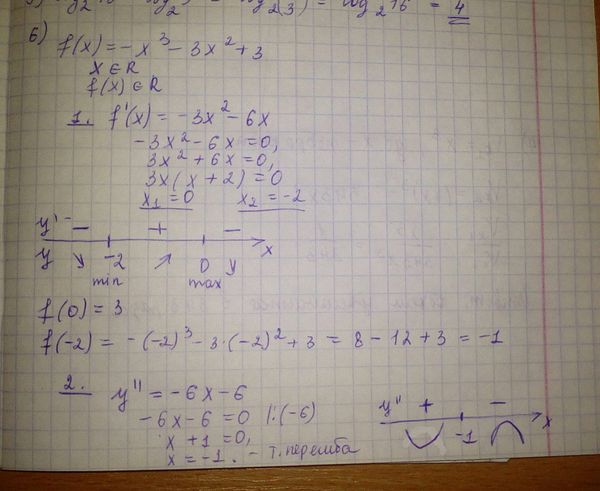 = log₂ 16 = 4
6)
f(x) = -x³ - 3x² + 3
x ∈ R
f(x) ∈ R
1. f'(x) = -3x² - 6x
-3x² - 6x = 0,
3x² + 6x = 0,
3x(x + 2) = 0
x₁ = 0 x₂ = -2
y' - + -
y ↘ -2 ↗ 0 ↘ x
min max
f(0) = 3
f(-2) = -(-2)³ - 3·(-2)² + 3 = 8 - 12 + 3 = -1
2. y'' = -6x - 6
-6x - 6 = 0 |:(-6)
x + 1 = 0,
x = -1. - т. перегиба
y'' + -
-1 x